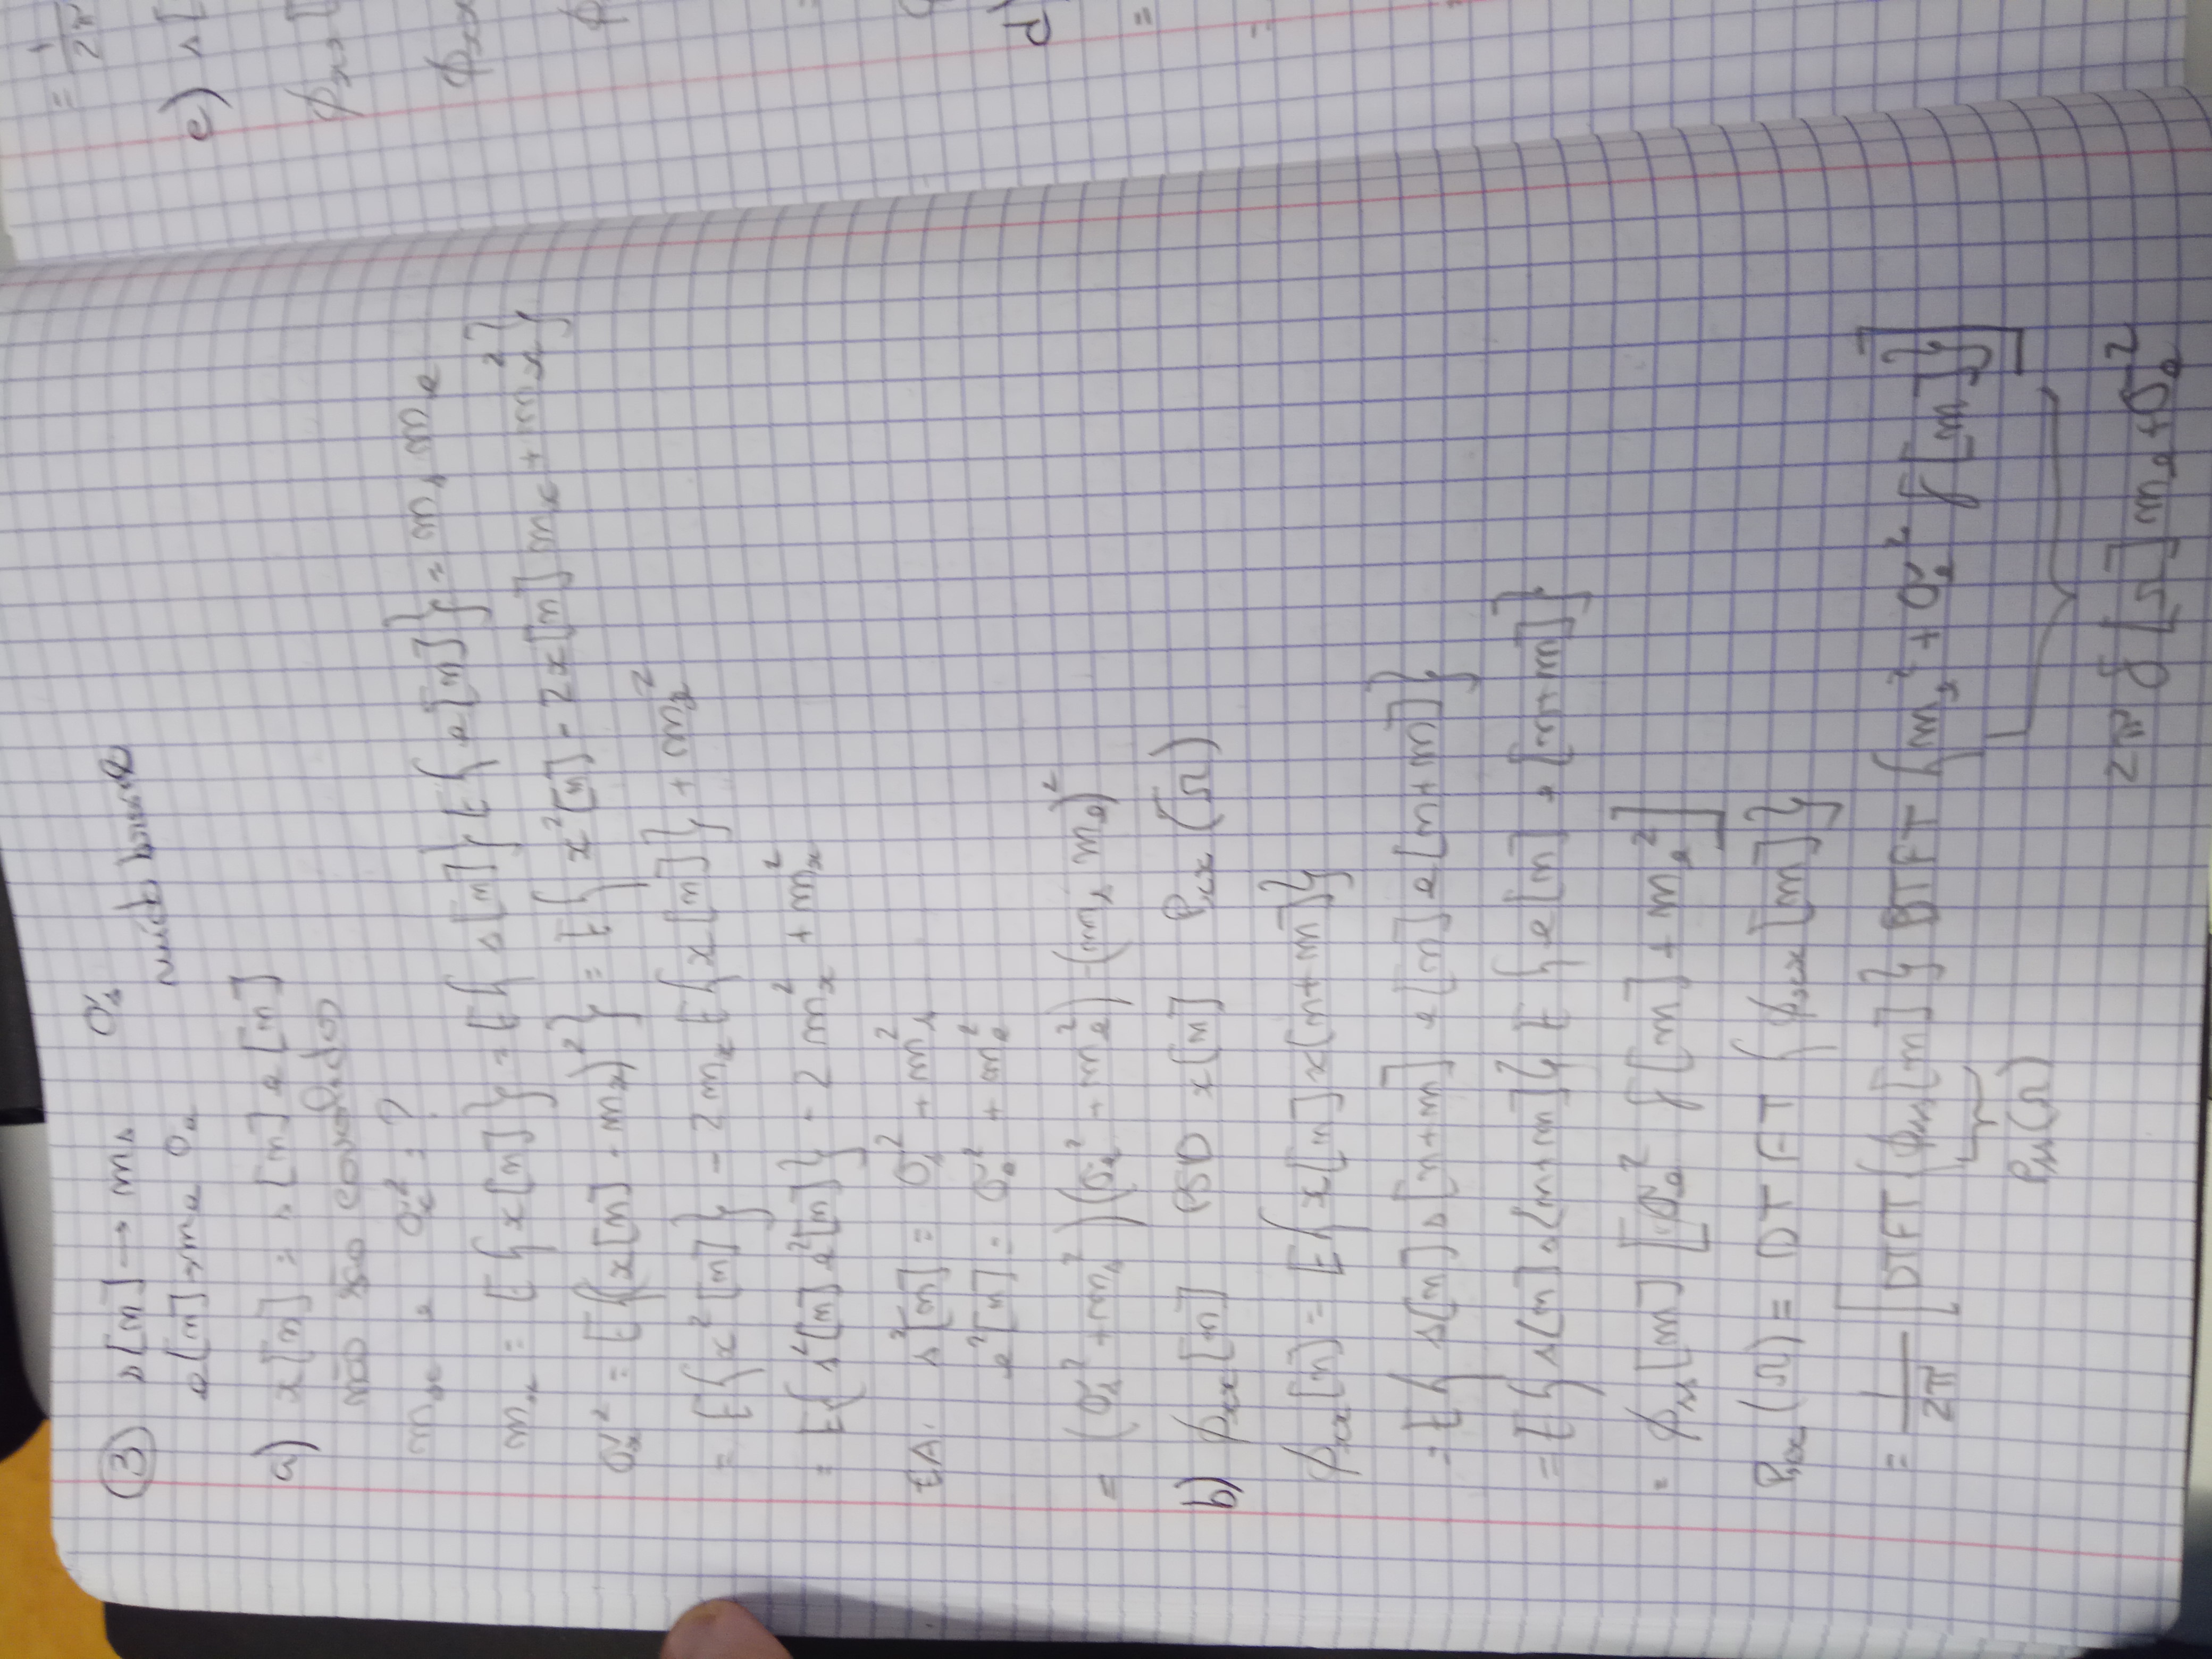 ③ s[n] → m_s σ_s
e[n] → m_e σ_e
a) x[n] = s[n] e[n]
não são correlados
m_x e σ_x² = ?
m_x = E{x[n]} = E{s[n]} E{e[n]} = m_s m_e
σ_x² = E{(x[n] - m_x)²} = E{x²[n] - 2x[n] m_x + m_x²}
= E{x²[n]} - 2 m_x E{x[n]} + m_x²
= E{s²[n] e²[n]} - 2 m_x² + m_x²
s²[n] = σ_s² + m_s²
e²[n] = σ_e² + m_e²
= (σ_s² + m_s²)(σ_e² + m_e²) - (m_s m_e)²
b) ϕ_xx[n] PSD x[n] P_xx(Ω)
ϕ_xx[n] = E{x[n] x[n+m]}
= E{s[n] s[n+m] e[n] e[n+m]}
= E{s[n] s[n+m]} E{e[n] e[n+m]}
= ϕ_ss[m] [σ_e² δ[m] + m_e²]
P_xx(Ω) = DTFT{ϕ_xx[m]}
= 1/2π [DTFT{ϕ_ss[m]} DTFT{m_e² + σ_e² δ[m]}]
P_ss(Ω)
2π δ[Ω] m_e + σ_e²
= 1/2π
e) s[
ϕ_xx[
ϕ_xx
d)
=